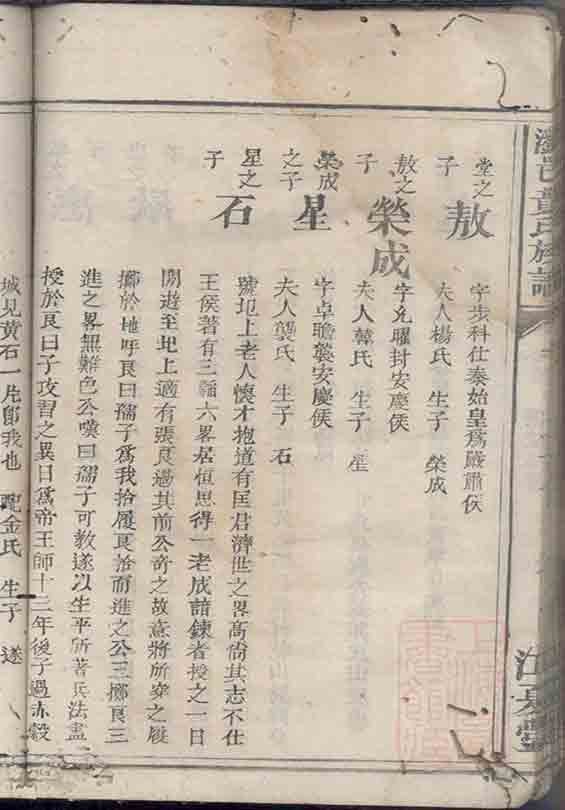 黃氏族譜
江夏堂
堂之子
敖
字步科仕秦始皇爲嚴肅侯
夫人楊氏 生子 榮成
敖之子
榮成
字允曜封安慶侯
夫人韓氏 生子 星
榮成之子
星
字卓瞻襲安慶侯
夫人龔氏 生子 石
星之子
石
號圯上老人懷才抱道有匡君濟世之畧高尙其志不仕
王侯著有三韜六畧居恒思得一老成諳鍊者授之一日
閒遊至圯上適有張良過其前公奇之故意將所穿之履
擲於地呼良曰孺子爲我拾履良拾而進之公三擲良三
進之畧無難色公嘆曰孺子可敎遂以生平所著兵法盡
授於良曰子攻習之異日爲帝王師十三年後子過
城見黄石一片卽我也 配金氏 生子 遂